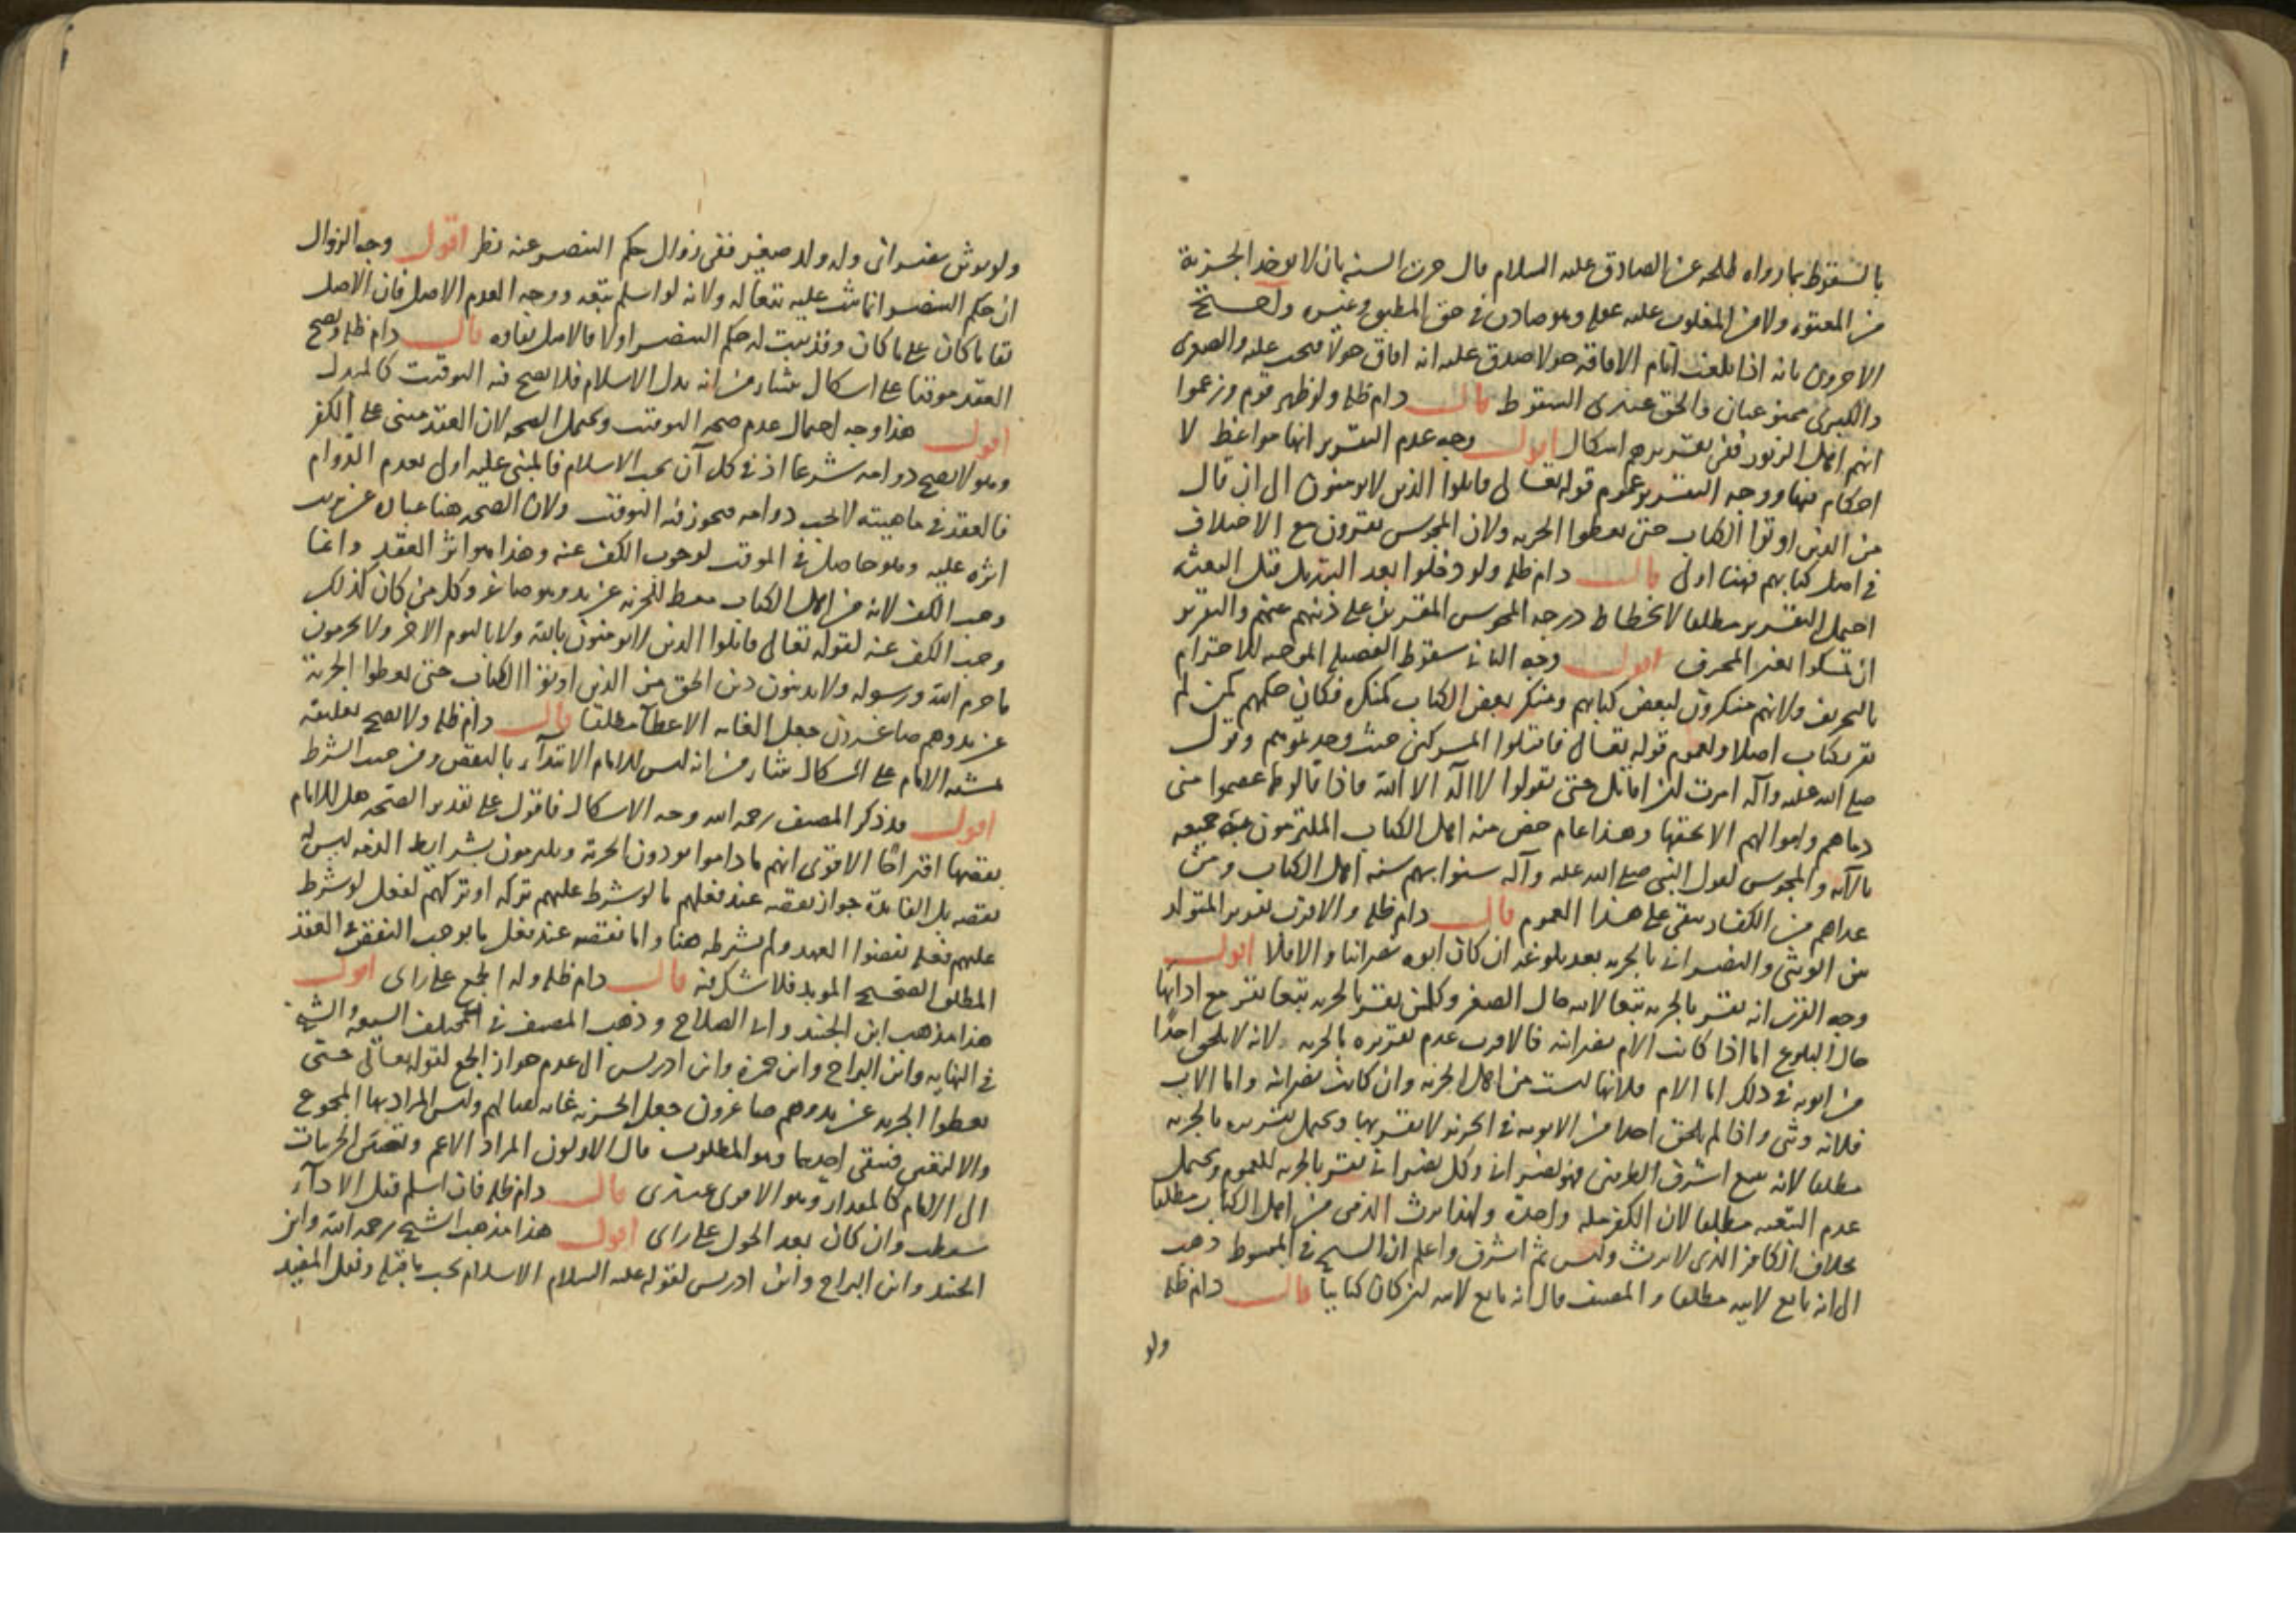 بالسقوط بما رواه طلحه عن الصادق عليه السلام قال جرت السنه بان لا يوخذ الجزية
من المعتوه ولا من المغلوب عليه عقله وهو صادق في حق المطبق وغيره واحتج
الاخرون بانه اذا بلغت ايام الافاقه حولا صدق عليه انه افاق حولا فتجب عليه والصغرى
والكبرى ممنوعتان والحق عندى السقوط قال دام ظله ولو ظهر قوم وزعموا
انهم اهل الزبور ففى تقريرهم اشكال اقول وجه عدم التقرير انها مواعظ لا
احكام فيها ووجه التقرير عموم قوله تعالى قاتلوا الذين لا يومنون الى ان قال
من الذين اوتوا الكتاب حتى يعطوا الجزيه ولان المجوس يقرون مع الاختلاف
في اصل كتابهم فهنا اولى قال دام ظله ولو دخلوا بعد التبديل قبل البعثه
احتمل التقرير مطلقا لانحطاط درجه المجوس المقرين على دينهم عنهم والتقرير
ان تمسكوا بغير المحرف اقول وجه الثانى سقوط الفضيله الموجبه للاحترام
بالتحريف ولانهم منكرون لبعض كتابهم ومنكر بعض الكتاب كمنكره فكان حكمهم كمن لم
يقر بكتاب اصلا ولعموم قوله تعالى فاقتلوا المشركين حيث وجدتموهم وقوله
صلى الله عليه وآله امرت ان اقاتل حتى يقولوا لا اله الا الله فاذا قالوها عصموا منى
دماهم واموالهم الا بحقها وهذا عام خص منه اهل الكتاب الملتزمون بجميعه
بالآيه والمجوس لقول النبى صلى الله عليه وآله سنوا بهم سنه اهل الكتاب ومن
عداهم من الكفار يبقى على هذا العموم قال دام ظله والاقرب تقرير المتولد
من الوثنى والنصرانى بالجزيه بعد بلوغه ان كان ابوه نصرانيا والا فلا اقول
وجه القرب انه يقر بالجزيه تبعا لابيه حال الصغر وكل من يقر بالجزيه تبعا يقر مع ادائها
حال البلوغ اما اذا كانت الام نصرانيه فالاقرب عدم تقريره بالجزيه لانه لا يلحق احدا
من ابويه في ذلك اما الام فلانها ليست من اهل الجزيه وان كانت نصرانيه واما الاب
فلانه وثنى واذا لم يلحق احدا من الابوين في الجزيه لا يقر بها ويحتمل تقريره بالجزيه
مطلقا لانه يتبع اشرف الطرفين فهو نصرانى وكل نصرانى يقر بالجزيه للعموم ويحتمل
عدم التبعيه مطلقا لان الكفر مله واحدة ولهذا يرث الذمى من اهل الكتاب مطلقا
بخلاف الكافر الذى لا يرث وليس ثم اشرف واعلم ان الشيخ في المبسوط ذهب
الى انه تابع لابيه مطلقا والمصنف قال انه تابع لابيه ان كان كتابيا قال دام ظله
ولو
ولو توثن نصرانى وله ولد صغير ففى زوال حكم التنصر عنه نظر اقول وجه الزوال
ان حكم التنصر انما ثبت عليه تبعا له ولانه لو اسلم تبعه ووجه العدم الاصل فان الاصل
بقا ما كان على ما كان وقد ثبت له حكم التنصر اولا فالاصل بقاوه قال دام ظله ويصح
العقد موقتا على اشكال ينشاء من انه بدل الاسلام فلا يصح فيه التوقيت كالمبدل
اقول هذا وجه احتمال عدم صحه التوقيت ويحتمل الصحه لان العقد مبنى على الكفر
وهو لا يصح دوامه شرعا اذ في كل آن يجب الاسلام فالمبنى عليه اولى بعدم الدوام
فالعقد في ماهيته لا يجب دوامه فيجوز فيه التوقيت ولان الصحه هنا عباره عن ترتب
اثره عليه وهو حاصل في الموقت لوجوب الكف عنه وهذا هو اثر العقد وانما
وجب الكف لانه من اهل الكتاب معط للجزيه عن يد وهو صاغر وكل من كان كذلك
وجب الكف عنه لقوله تعالى قاتلوا الذين لا يومنون بالله ولا باليوم الاخر ولا يحرمون
ما حرم الله ورسوله ولا يدينون دين الحق من الذين اوتوا الكتاب حتى يعطوا الجزية
عن يد وهم صاغرون جعل الغايه الاعطآ مطلقا قال دام ظله ولا يصح تعليقه
بمشيه الامام على اشكال ينشاء من انه ليس للامام الابتدآء بالنقض ومن حيث الشرط
اقول قد ذكر المصنف رحمه الله وجه الاشكال فاقول على تقدير الصحه هل للامام
نقضها اقتراحًا الاقوى انهم ما داموا يودون الجزية ويلتزمون بشرايط الذمه ليس له
نقضه بل الفايدة جواز نقضه عند فعلهم ما لو شرط عليهم تركه او تركهم لفعل لو شرط
عليهم فعله نقضوا العهد ولم يشرطه هنا واما نقضه عند فعل ما يوجب النقض في العقد
المطلق الصحيح الموبد فلا شك فيه قال دام ظله وله الجمع على راى اقول
هذا مذهب ابن الجنيد وابى الصلاح وذهب المصنف في المختلف الشيخ
في النهايه وابن البراج وابن حمزة وابن ادريس الى عدم جواز الجمع لقوله تعالى حتى
يعطوا الجزيه عن يد وهم صاغرون جعل الجزيه غايه لقتالهم وليس المراد بها المجموع
والا لبقى فيبقى احدهما وهو المطلوب قال الاولون المراد الاعم وتعيين الجزيات
الى الامام كالمقدار وهو الاقوى عندى قال دام ظله فان اسلم قبل الادآء
سقطت وان كان بعد الحول على راى اقول هذا مذهب الشيخ رحمه الله وابن
الجنيد وابن البراج وابن ادريس لقوله عليه السلام الاسلام يجب ما قبله ونقل المفيد